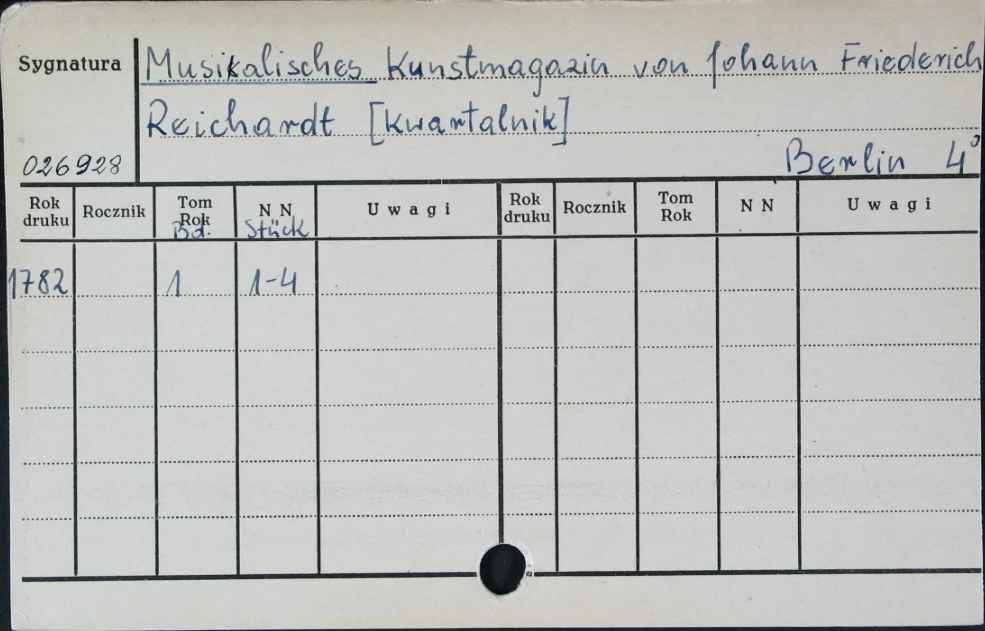 Sygnatura
Musikalisches Kunstmagazin von Johann Friederich
Reichardt [Kwartalnik]
026928
Berlin 4°
Rok druku Rocznik Tom Rok Bd. N N Stück Uwagi Rok druku Rocznik Tom Rok N N Uwagi
1782 1 1-4